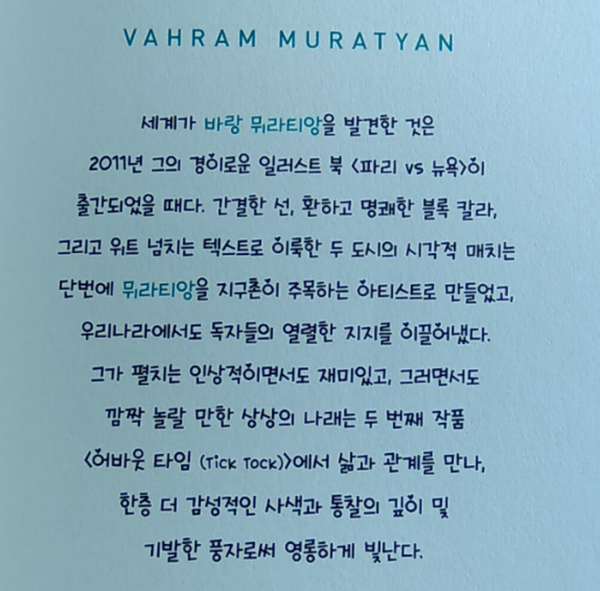 VAHRAM MURATYAN
세계가 바랑 뮈라티앙을 발견한 것은
2011년 그의 경이로운 일러스트 북 <파리 vs 뉴욕>이
출간되었을 때다. 간결한 선, 환하고 명쾌한 블록 칼라,
그리고 위트 넘치는 텍스트로 이룩한 두 도시의 시각적 매치는
단번에 뮈라티앙을 지구촌이 주목하는 아티스트로 만들었고,
우리나라에서도 독자들의 열렬한 지지를 이끌어냈다.
그가 펼치는 인상적이면서도 재미있고, 그러면서도
깜짝 놀랄 만한 상상의 나래는 두 번째 작품
<어바웃 타임 (Tick Tock)>에서 삶과 관계를 만나,
한층 더 감성적인 사색과 통찰의 깊이 및
기발한 풍자로써 영롱하게 빛난다.